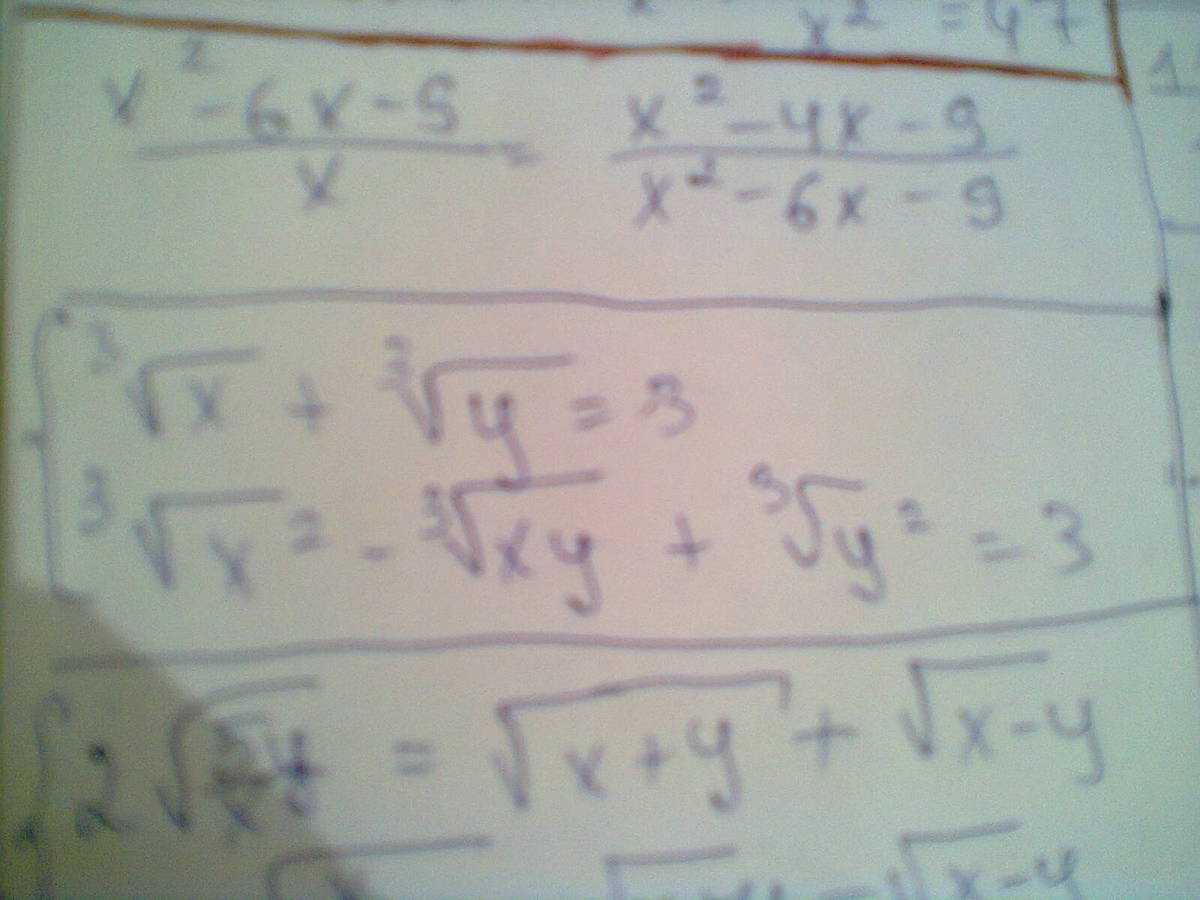 x² = 47
(x² - 6x - 9)/x = (x² - 4x - 9)/(x² - 6x - 9)
{ ³√x + ³√y = 3
³√x² - ³√xy + ³√y² = 3
= √(x+y) + √(x-y)
√(x-y)